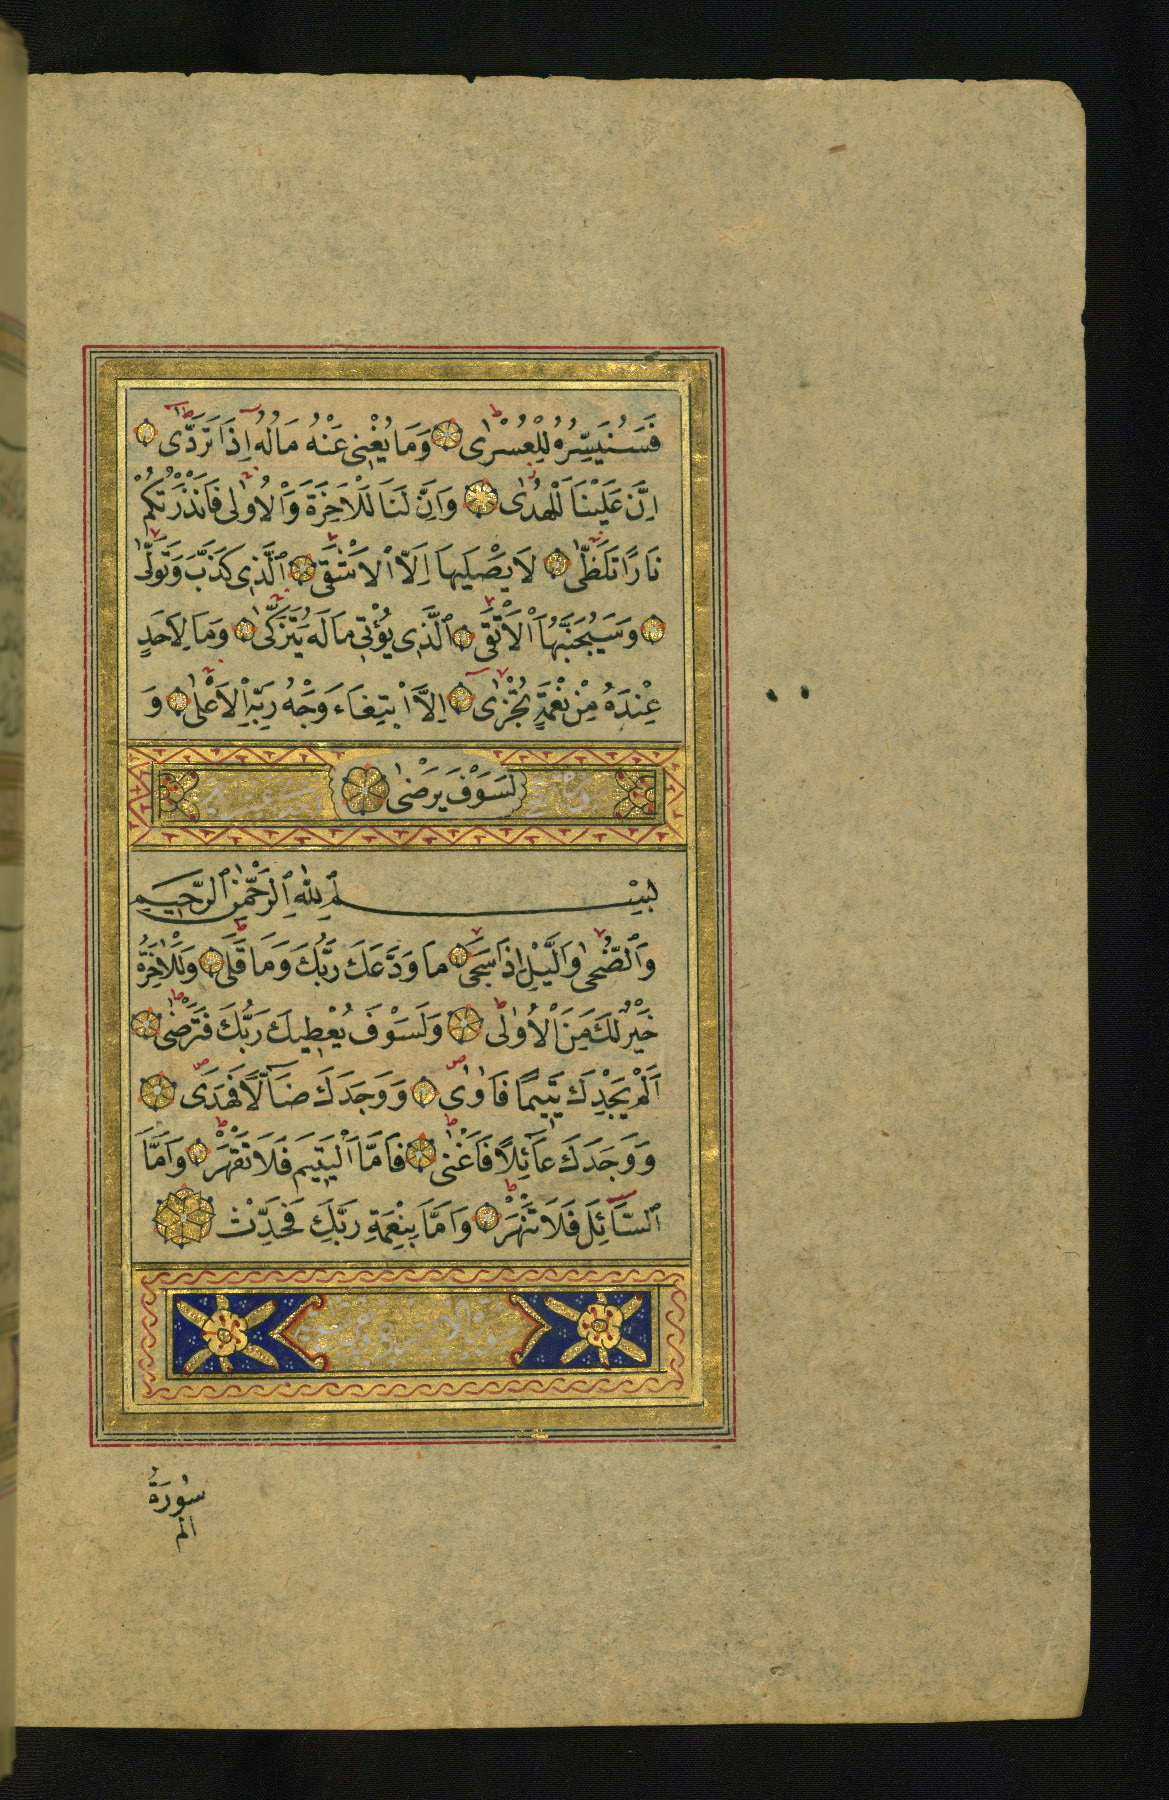 فَسَنُيَسِّرُهُ لِلْعُسْرٰى وَمَا يُغْنِى عَنْهُ مَالُهُ اِذَا تَرَدّٰى
اِنَّ عَلَيْنَا لَلْهُدٰى وَاِنَّ لَنَا لَلْاٰخِرَةَ وَالْاُولٰى فَاَنْذَرْتُكُمْ
نَارًا تَلَظّٰى لَا يَصْلٰيهَا اِلَّا الْاَشْقَى الَّذِى كَذَّبَ وَتَوَلّٰى
وَسَيُجَنَّبُهَا الْاَتْقَى الَّذِى يُؤْتِى مَالَهُ يَتَزَكّٰى وَمَا لِاَحَدٍ
عِنْدَهُ مِنْ نِعْمَةٍ تُجْزٰى اِلَّا ابْتِغَاءَ وَجْهِ رَبِّهِ الْاَعْلٰى وَ
لَسَوْفَ يَرْضٰى
بِسْمِ اللّٰهِ الرَّحْمٰنِ الرَّحِيمِ
وَالضُّحٰى وَالَّيْلِ اِذَا سَجٰى مَا وَدَّعَكَ رَبُّكَ وَمَا قَلٰى وَلَلْاٰخِرَةُ
خَيْرٌ لَكَ مِنَ الْاُولٰى وَلَسَوْفَ يُعْطِيكَ رَبُّكَ فَتَرْضٰى
اَلَمْ يَجِدْكَ يَتِيمًا فَاٰوٰى وَوَجَدَكَ ضَالًّا فَهَدٰى
وَوَجَدَكَ عَائِلًا فَاَغْنٰى فَاَمَّا الْيَتِيمَ فَلَا تَقْهَرْ وَاَمَّا
السَّائِلَ فَلَا تَنْهَرْ وَاَمَّا بِنِعْمَةِ رَبِّكَ فَحَدِّثْ
سُورَةُ
الم